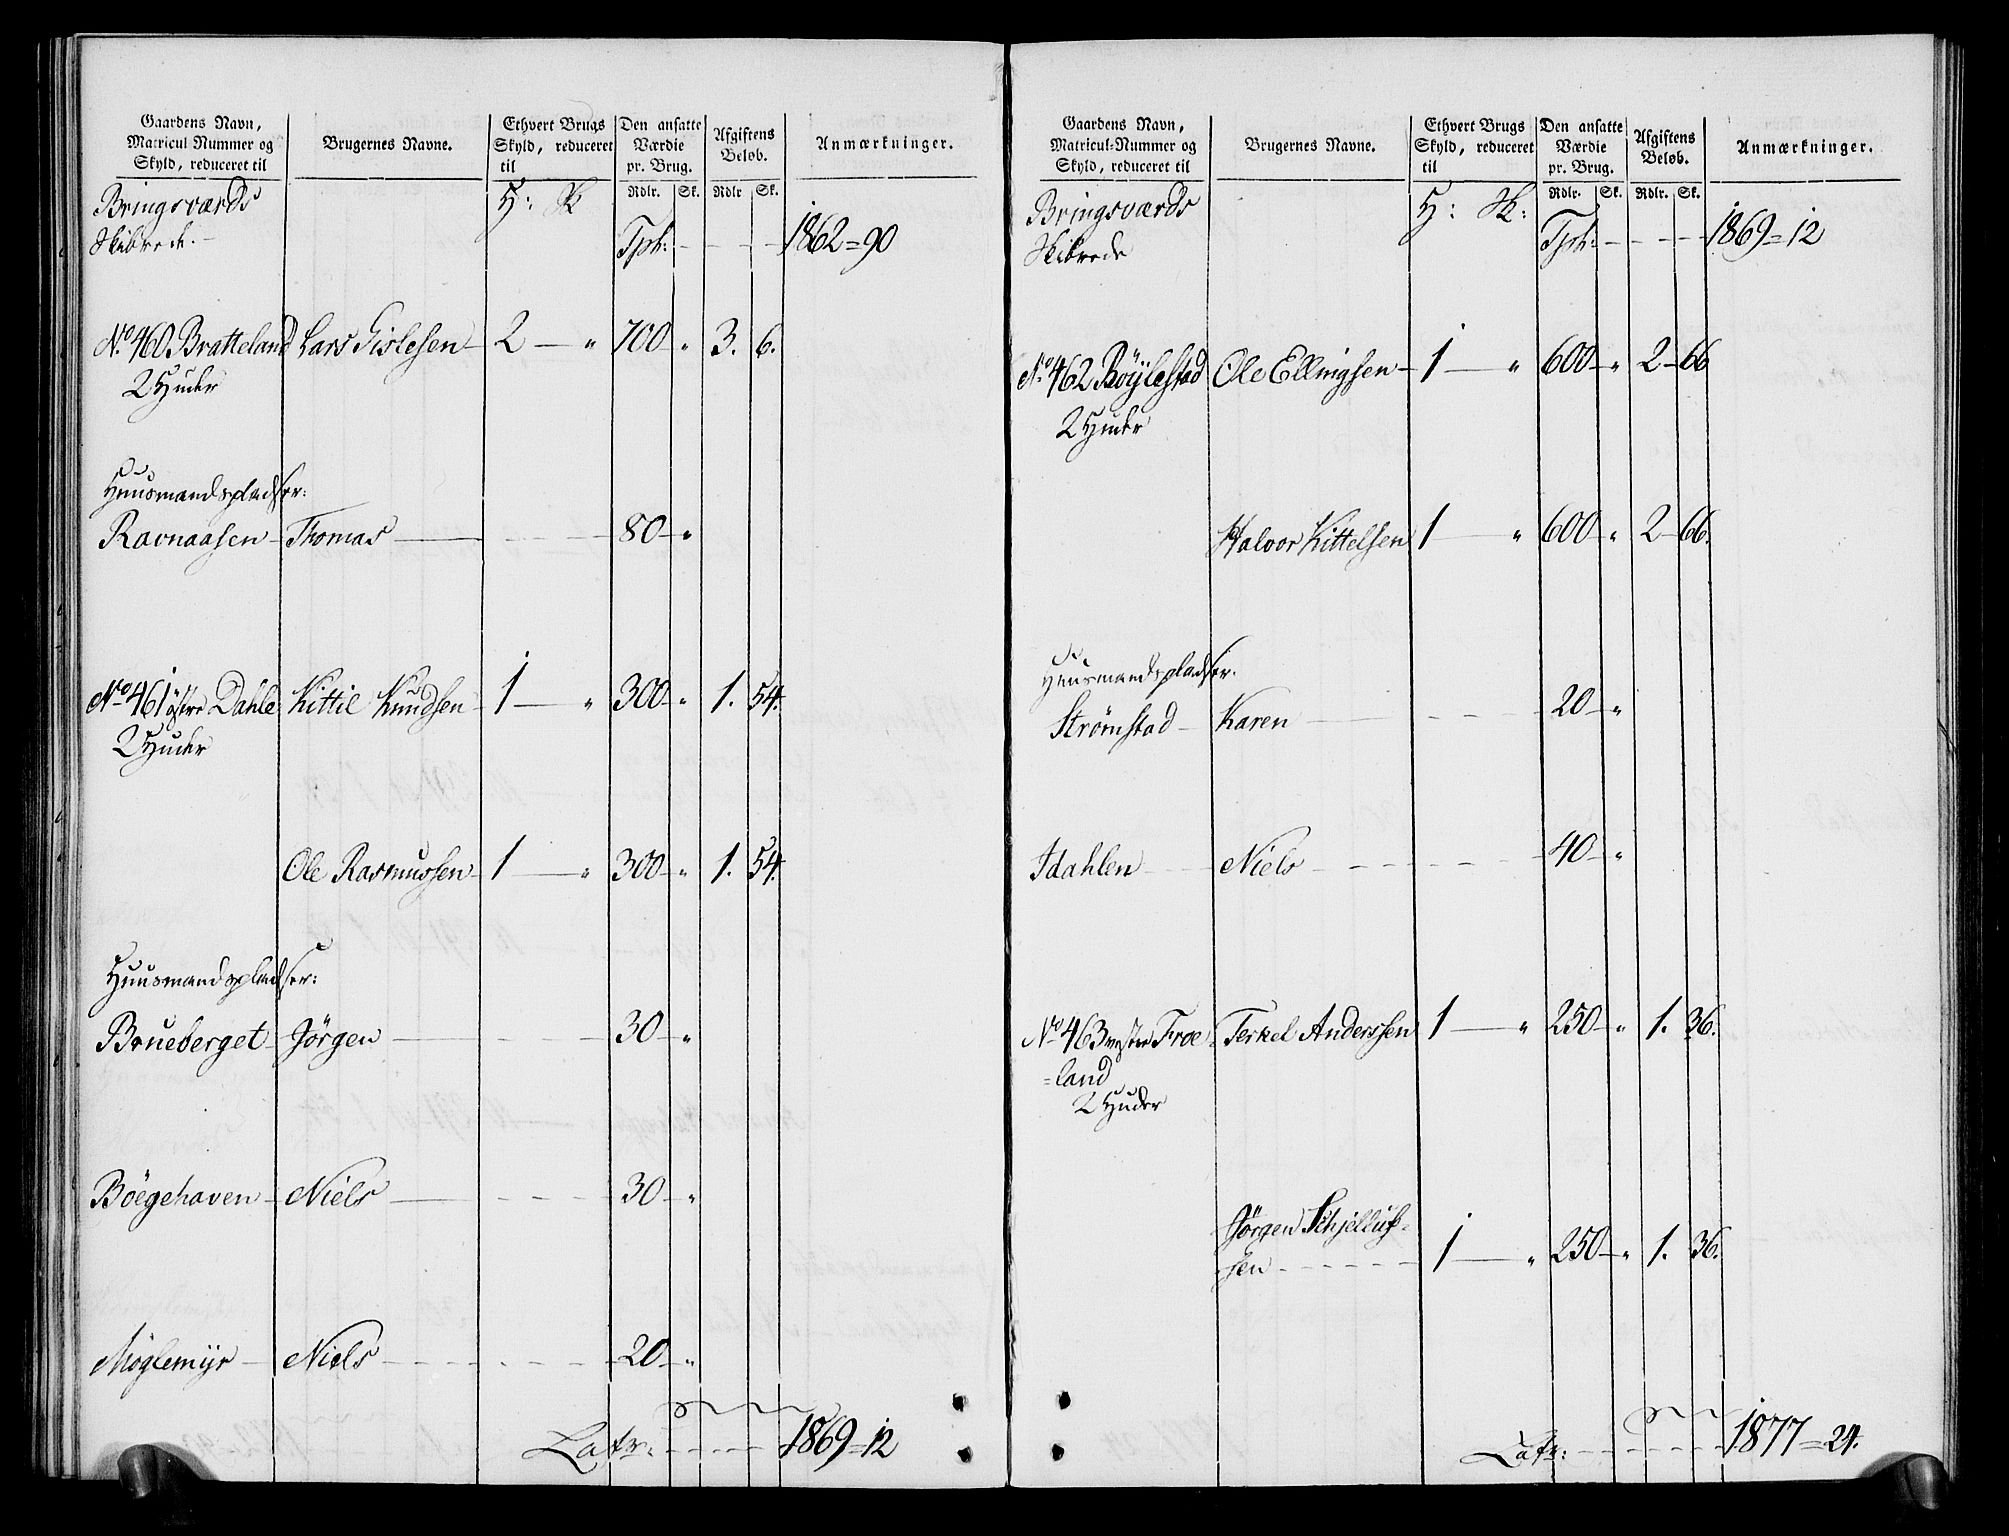 Gaardens Navn, Matricul Nummer og Skyld, reduceret til | Brugernes Navne. | Ethvert Brugs Skyld, reduceret til | Den ansatte Værdie pr. Brug. Rdlr. Sk. | Afgiftens Beløb. Rdlr Sk. | Anmærkninger.
Bringsværds H: Sk
Skibrede.- Tpt: - - - 1862=90
No. 460 Bratteland Lars Gislesen 2 — " 700 " 3. 6.
2 Huder
Huusmandspladser:
Ravnaasen Thomas 80 "
No 461 østre Dahle Kittil Knudsen 1 — " 300 " 1. 54.
2 Huder
Ole Rasmussen 1 — " 300 " 1. 54.
Huusmandspladser:
Brueberget Jörgen 30 "
Böegehaven Niels 30 "
Møglemÿr Niels 20 "
Latr: - - - 1869=12
Gaardens Navn, Matricul-Nummer og Skyld, reduceret til | Brugernes Navne. | Ethvert Brugs Skyld, reduceret til | Den ansatte Værdie pr. Brug. Rdlr. Sk. | Afgiftens Beløb. Rdlr. Sk. | Anmærkninger.
Bringsværds H: Sk:
Skibrede Tpt: - - - 1869=12
No. 462 Böÿlestad Ole Ellingsen 1 — " 600 " 2 66
2 Huder
Halvor Kittelsen 1 — " 600 " 2 66.
Huusmandspladser.
Strømstad Karen 20 "
Idahlen Niels 40 "
No 463 vestre Froe Terkel Anderssen 1 — " 250 " 1. 36.
=land
2 Huder
Jørgen Schjelluf-
sen 1 — " 250 " 1. 36.
Latr: - - - 1877=24.